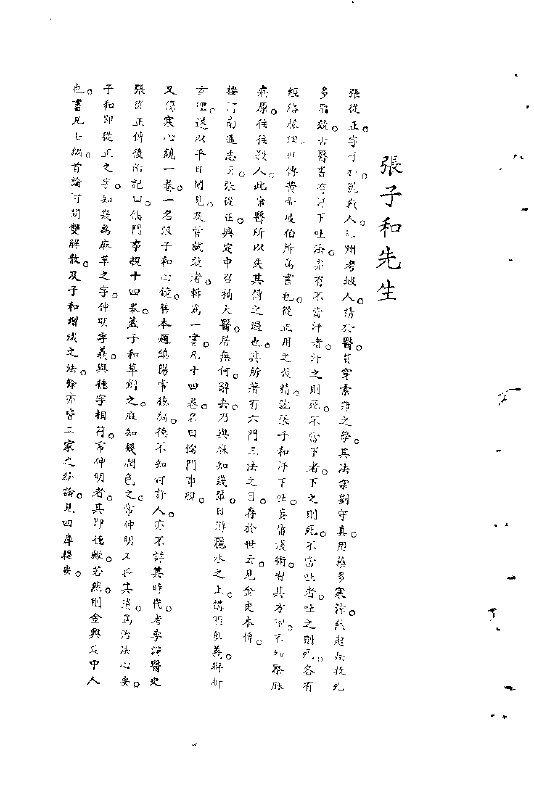 張子和先生
張從正。字子和。睢州考城人。精於醫。貫穿素難之學。其法宗劉守真。用藥多寒涼。然起疾救死
多取效。古醫書有汗下吐法。亦有不當汗者。汗之則死。不當下者。下之則死。不當吐者。吐之則死。各有
經絡脈理。世傳黃帝岐伯所為書也。從正用之最精。號張子和汗下吐法。妄庸淺術習其方劑。不知察脈
病原。往往殺人。此庸醫所以失其傳之過也。其所著有六門三法之目。存於世云。見金史本傳。
張從正興定中召補太醫。居無何辭去。乃與麻知幾輩日遊隱水之上。講明奧義。辨析
玄理。遂以平日聞見及嘗試效者。輯為一書。凡十四卷。名曰儒門事親。
又傷寒心鏡一卷。一名張子和心鏡。舊本題鎮陽常德編。德不知何許人。亦不詳其時代。考李濂醫史
張從正傳後附記曰。儒門事親十四卷。蓋子和草創之。麻知幾潤色之。常仲明又摭其遺為治法心要。
子和即從正之字。知幾為麻革之字。仲明字義與德字相符。常仲明者。其即德歟。若然則金興定中人
也。書凡七篇。首論河間雙解散及子和增減之法。餘亦皆二家之緒論。見四庫提要。